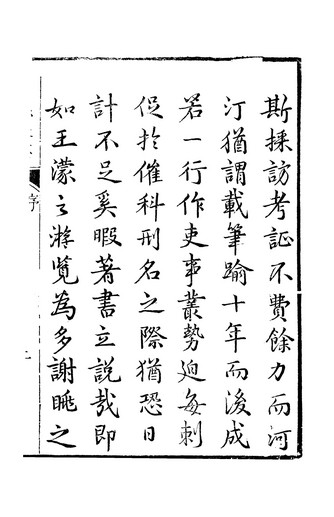 斯採訪考証不費餘力而河
汀猶謂載筆踰十年而後成
若一行作吏事叢勢迫每刺
促於催科刑名之際猶恐日
計不足奚暇著書立說哉即
如王濛之游覧為多謝眺之
序